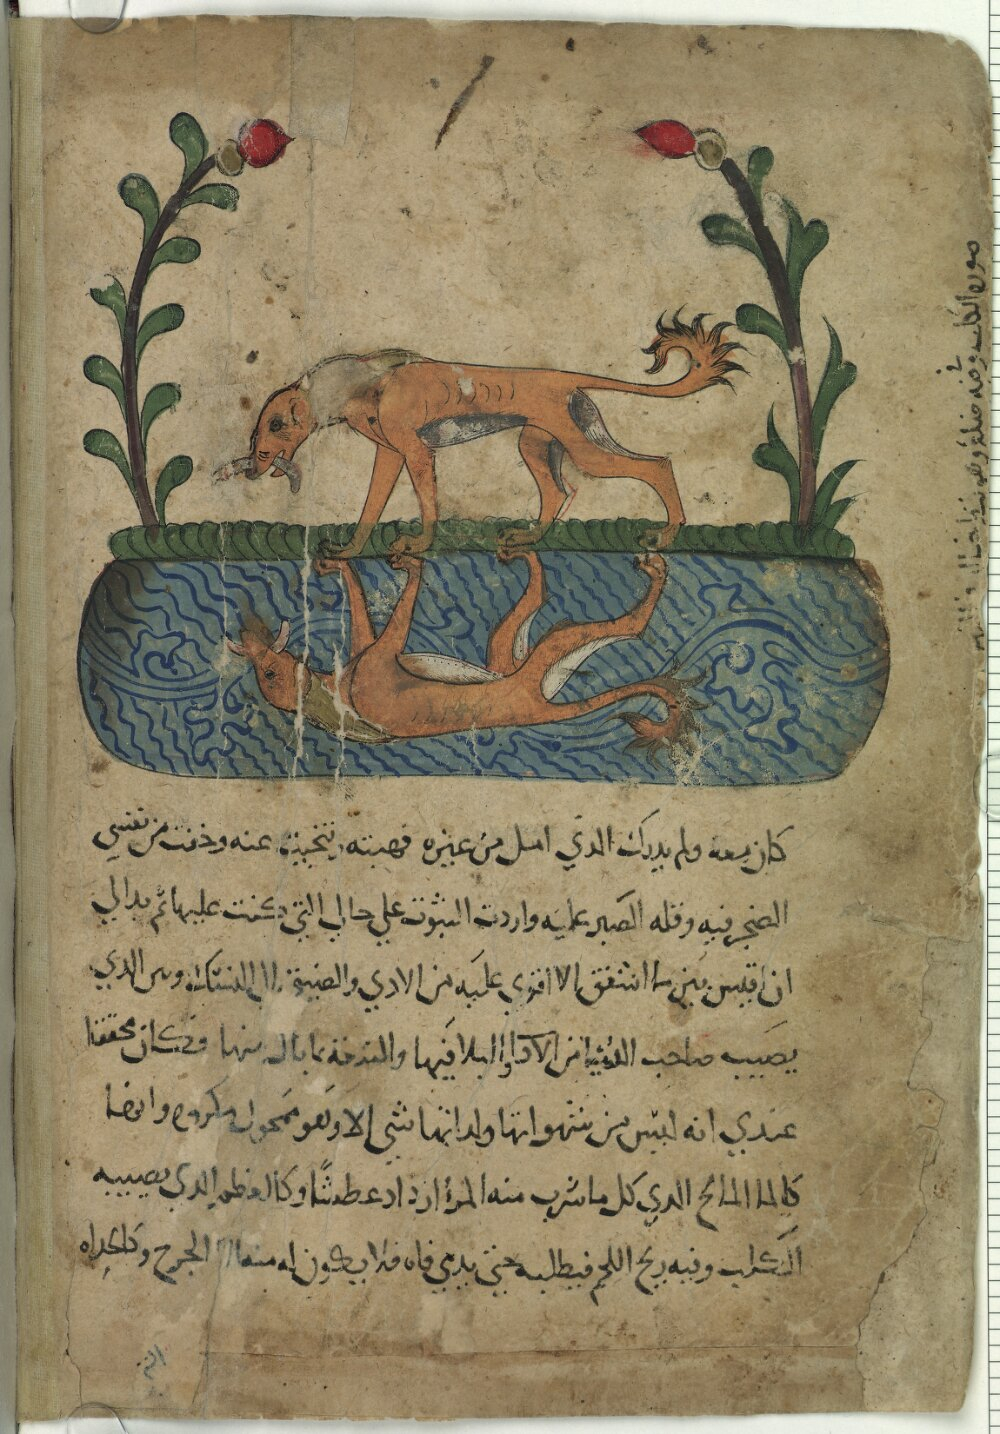 صورة الكلب وفي فيه ضلع وهو ينظر خياله في النهر
كان معه ولم يدرك الذي امل من غيره فهبته عنه وخفت من نفسي
الضجر فيه وقله الصبر عليه واردت الثبوت علي حالي التي كنت عليها ثم بدا لي
ان اقيس بين ما اشفق الا اقوي عليه من الاذي والضيق في النسك وبين الذي
يصيب صاحب الدنيا من البلا فيها والتدخه بما ينال منها وكان محققا
عندي انه ليس من شهواتها ولذاتها شي الا وهو محول مكروه وايضا
كالما المالح الذي كل ما شرب منه المرؤ ازداد عطشًا وكالعظم الذي يصيبه
الكلب وفيه ريح اللحم فيطلبه حتي يدمي فاه فلا يكون له منه الا الجرح وكالحداه